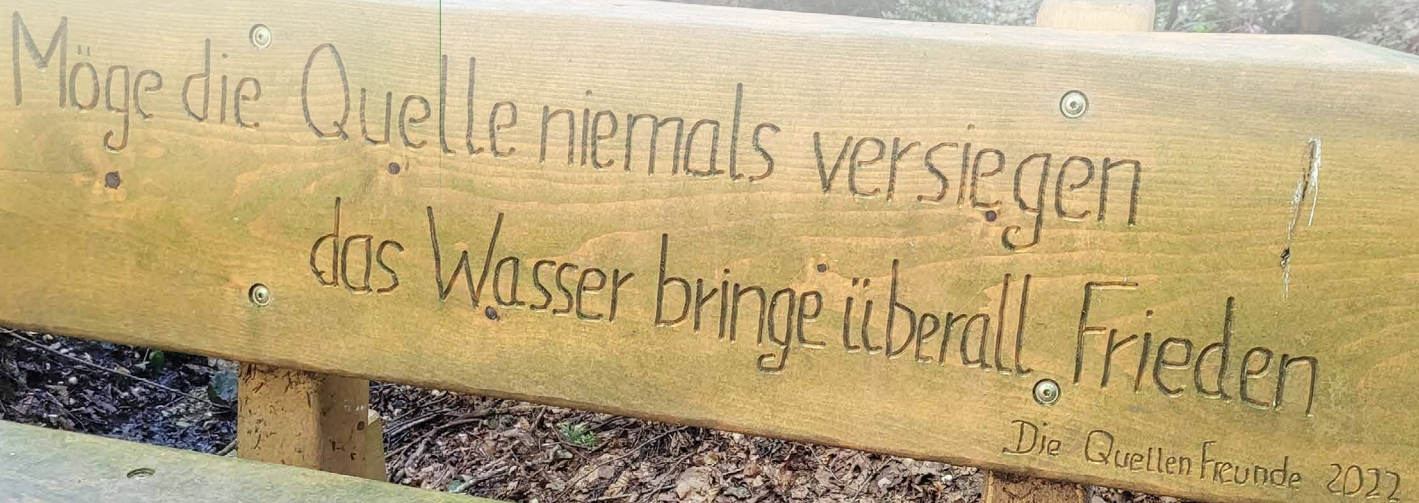 Möge die Quelle niemals versiegen
das Wasser bringe überall Frieden
Die Quellenfreunde 2022